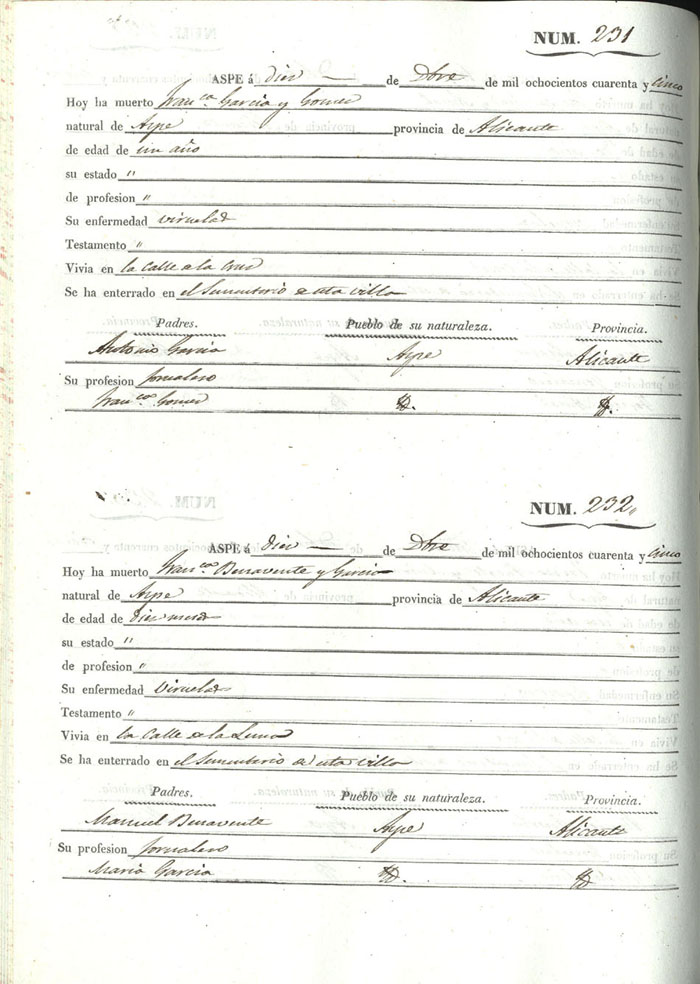 NUM. 231
ASPE á diez de Dbre de mil ochocientos cuarenta y cinco
Hoy ha muerto Fran.ca Garcia y Gomez
natural de Aspe provincia de Alicante
de edad de un año
su estado "
de profesion "
Su enfermedad viruelas
Testamento "
Vivia en la calle de la Cruz
Se ha enterrado en el Sementerio de esta villa
Padres. Pueblo de su naturaleza. Provincia.
Antonio Garcia Aspe Alicante
Su profesion Jornalero
Fran.ca Gomez
NUM. 232
ASPE á diez de Dbre de mil ochocientos cuarenta y cinco
Hoy ha muerto Fran.co Benavente y Garcia
natural de Aspe provincia de Alicante
de edad de diez meses
su estado "
de profesion "
Su enfermedad Viruelas
Testamento "
Vivia en la Calle de la Luna
Se ha enterrado en el Sementerio de esta villa
Padres. Pueblo de su naturaleza. Provincia.
Manuel Benavente Aspe Alicante
Su profesion Jornalero
Maria Garcia